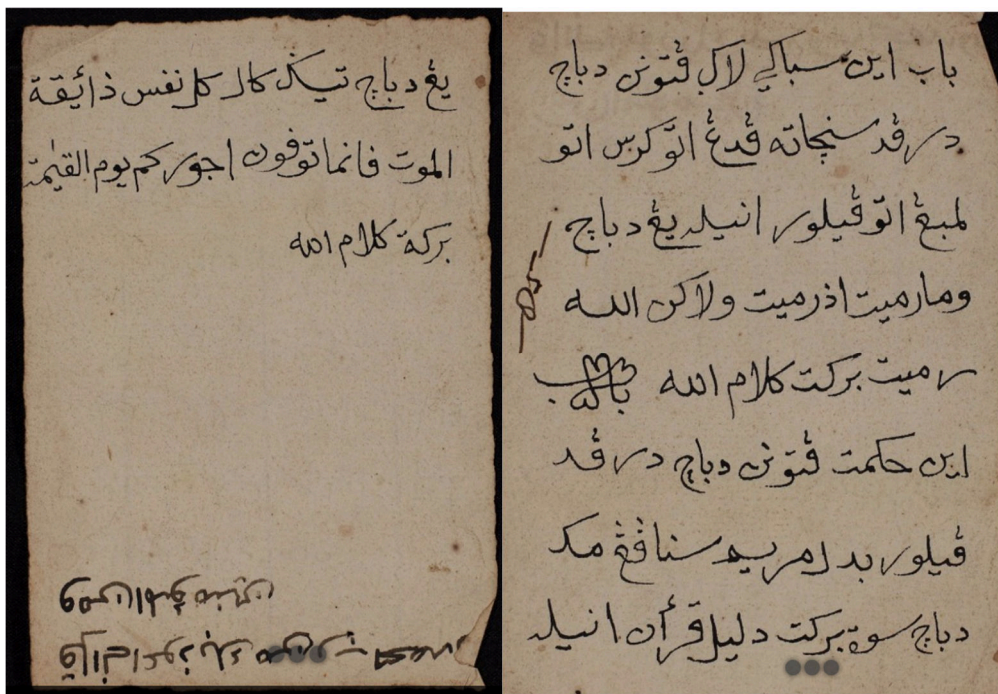 باب اين سباكي لاك ڤتون دباچ
در ڤد سنجاته ڤدڠ اتو كرس اتو
لمبڠ اتو ڤيلور انيله يڠ دباچ
ومارميت اذرميت ولاكن الله
رميت بركت كلام الله باب
اين حكمت ڤتون دباچ در ڤد
ڤيلور بدل مريم سناڤڠ مك
دباچ سوة بركت دليل قرأن انيله
يڠ دباچ تيك كال كل نفس ذائيقة
الموت فانما توفون اجوركم يوم القيٰمة
بركة كلام الله